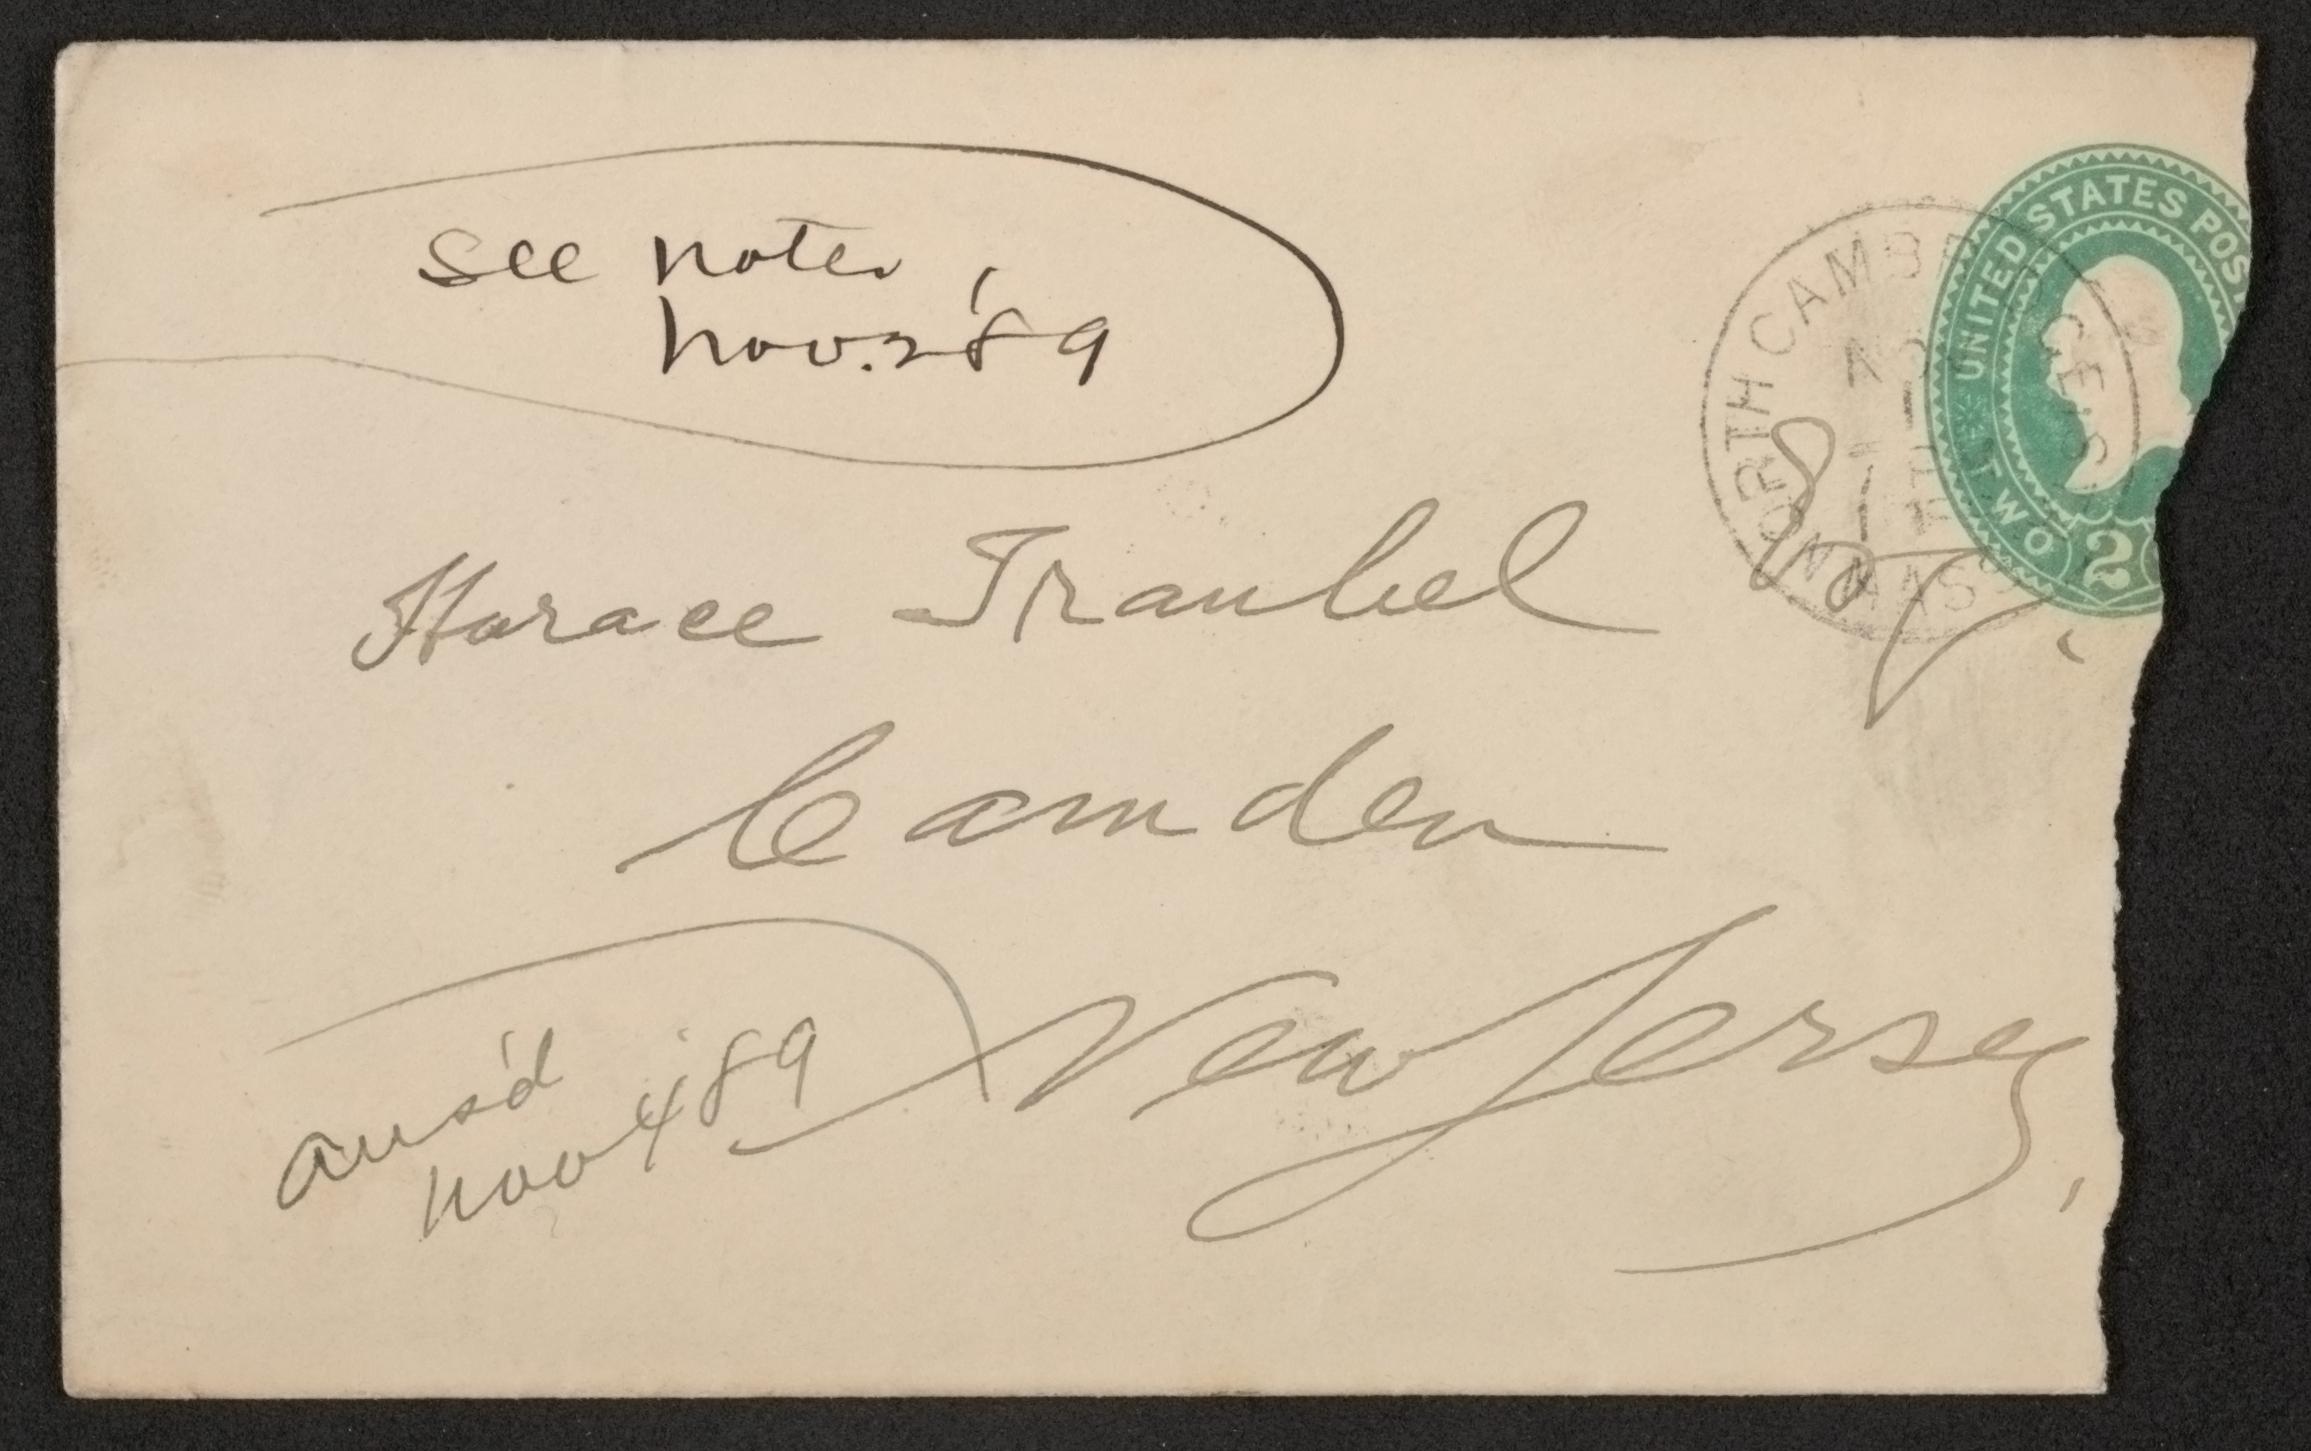 see notes,
Nov. 2 '89
NORTH CAMBRIDGE STA.
MASS
UNITED STATES POS
TWO
2
Horace Traubel
Camden
New Jersey,
ans'd
Nov 4 '89